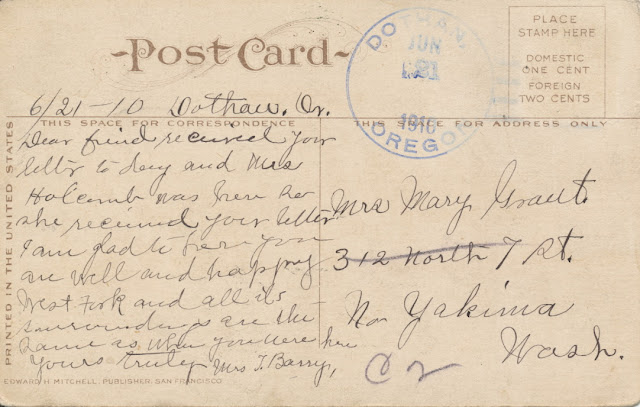 Post Card
PLACE
STAMP HERE
DOMESTIC
ONE CENT
FOREIGN
TWO CENTS
DOTHAN,
JUN
21
1910
OREGON
6/21-10 Dothan, Or.
THIS SPACE FOR CORRESPONDENCE
THIS SPACE FOR ADDRESS ONLY
Dear friend received your
letter to day and Mrs
Holcomb was here
she received your letter
I am glad to hear you
are well and happy
West Fork and all its
surroundings are the
same as when you were here
Yours truly Mrs T. Barry,
Mrs Mary Grant.
312 North 7 St.
No Yakima
Wash.
C 2
PRINTED IN THE UNITED STATES
EDWARD H. MITCHELL, PUBLISHER, SAN FRANCISCO